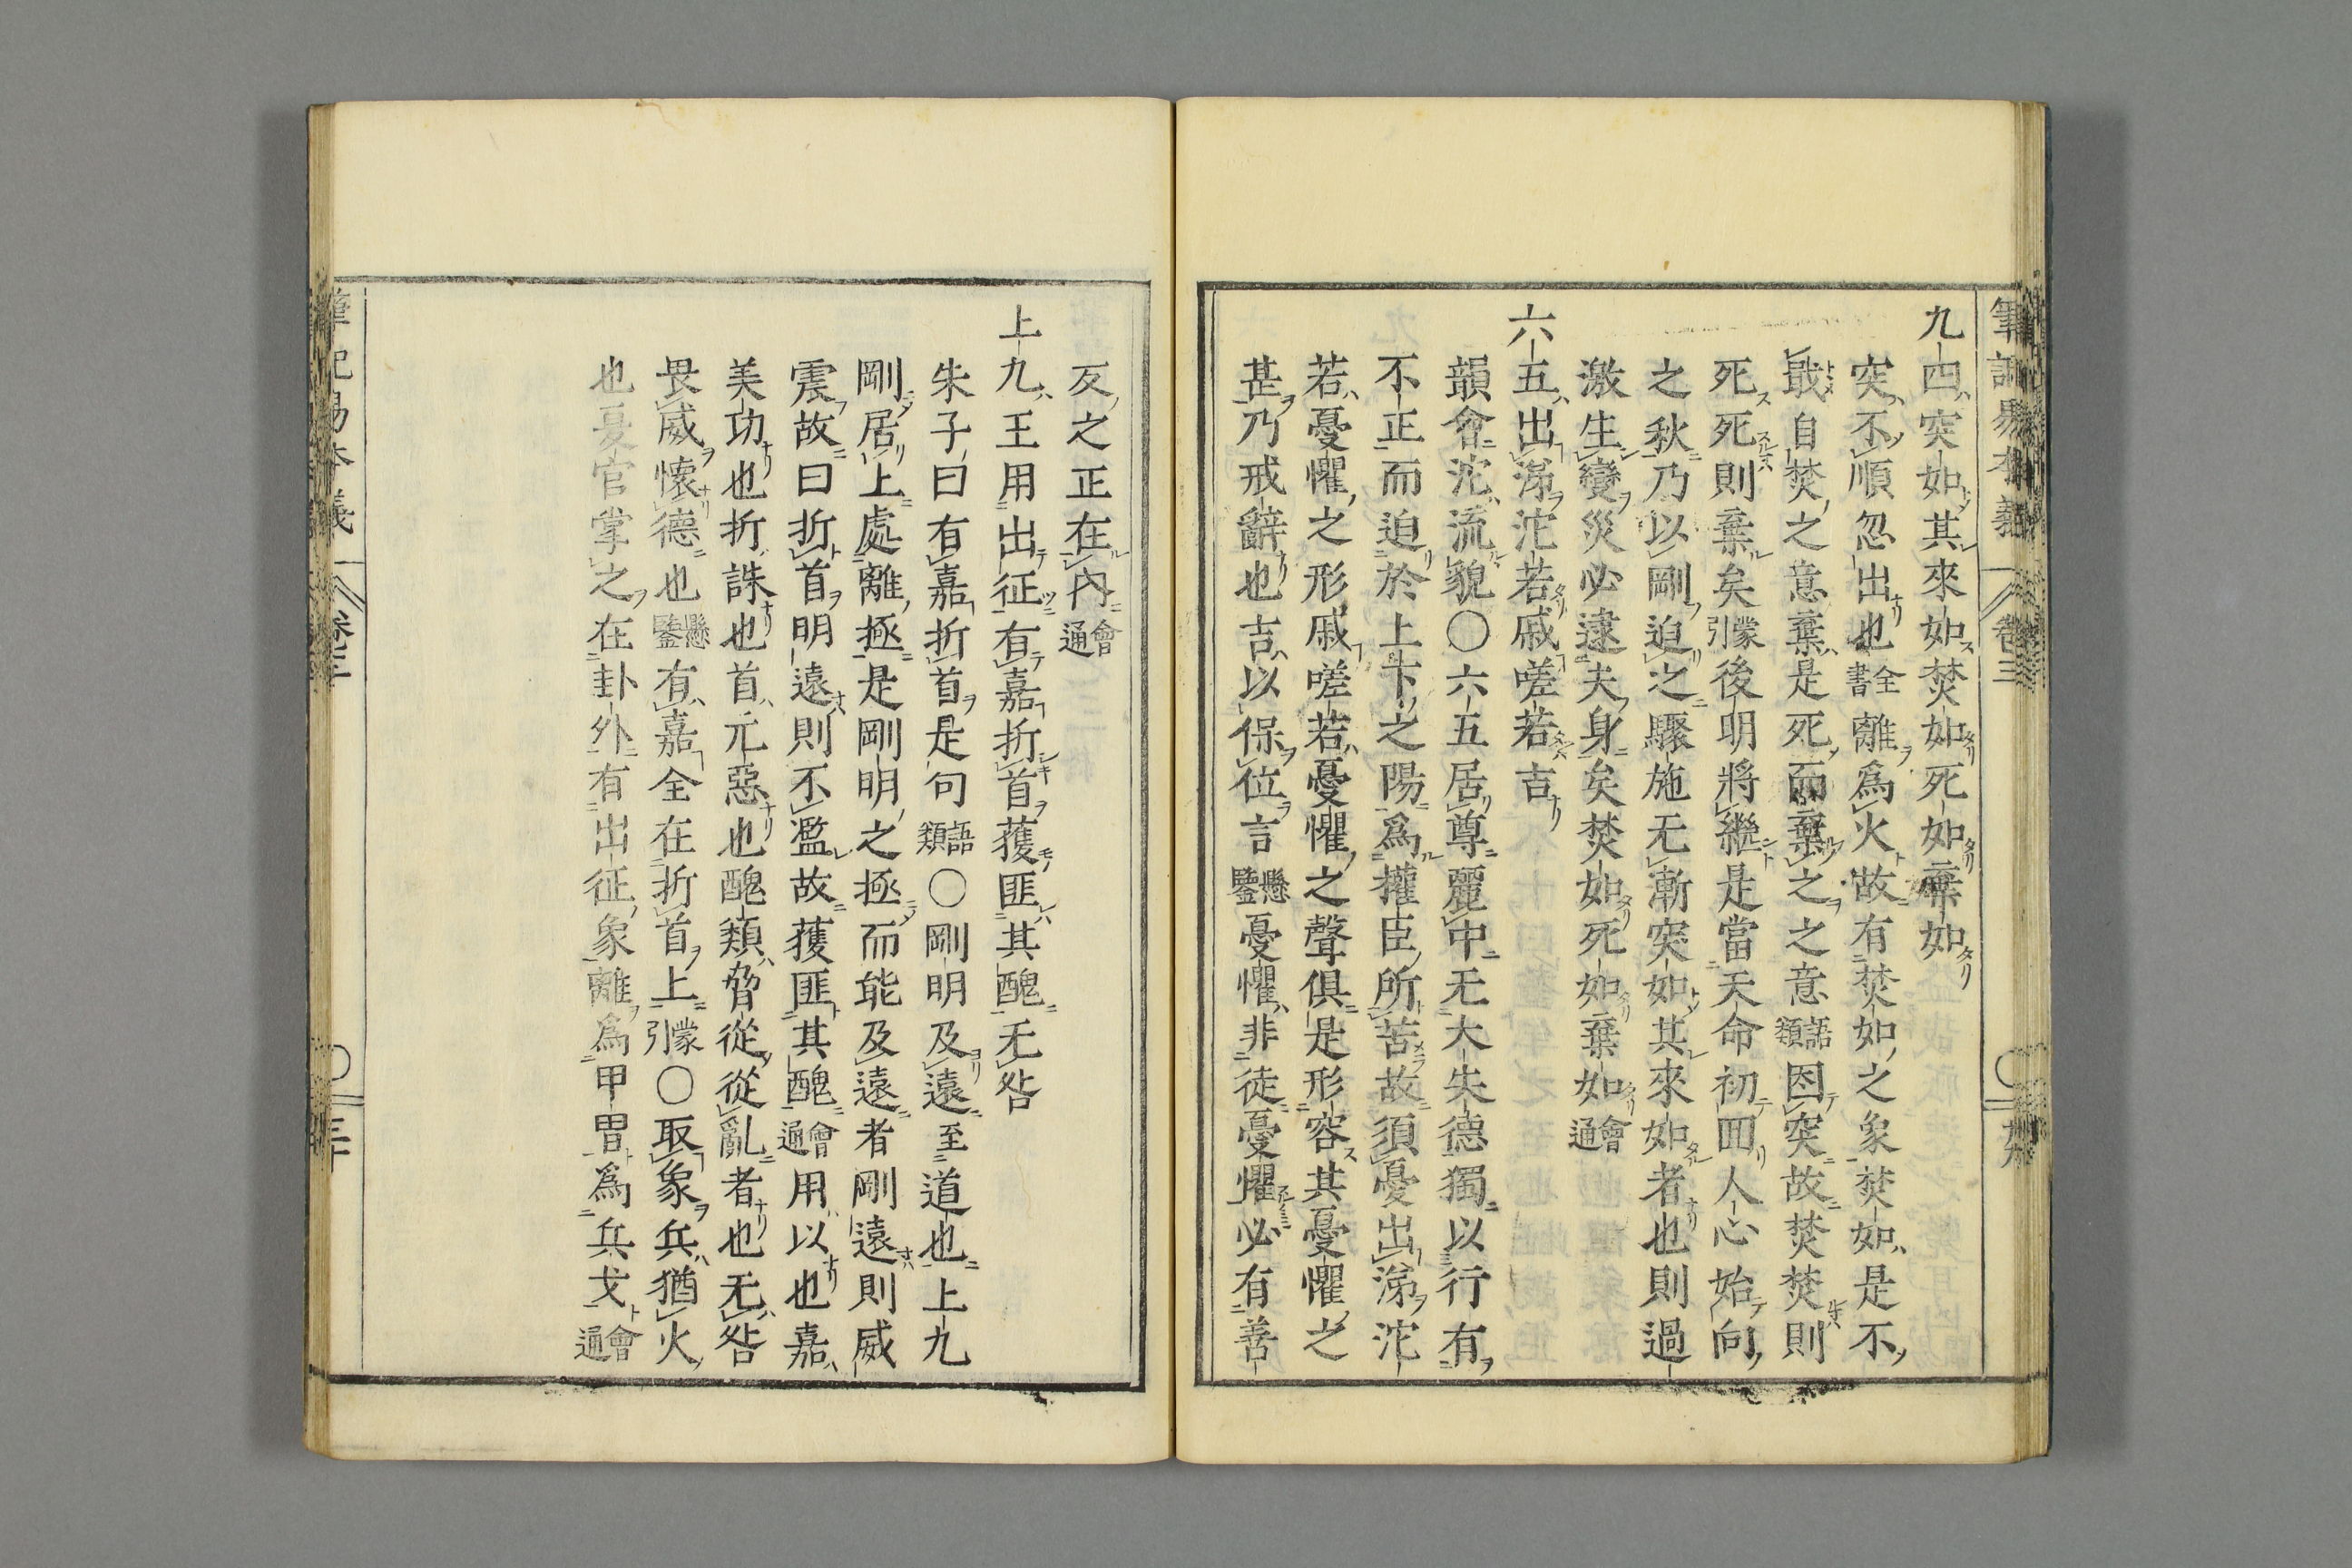 筆記易本義 卷三
九四突如其來如焚如死如棄如
突不順忽出也全書離爲火故有焚如之象焚如是不
戢自焚之意棄是死而棄之之意語類因突故焚焚則
死死則棄矣蒙引後明將繼是當天命初囬人心始向
之秋乃以剛迫之驟施无漸突如其來如者也則過
激生變災必逮夫身矣焚如死如棄如會通
六五出涕沱若戚嗟若吉
韻會沱流貌○六五居尊麗中无大失德獨以行有
不正而迫於上下之陽爲權臣所苦故須憂出涕沱
若憂懼之形戚嗟若憂懼之聲俱是形容其憂懼之
甚乃戒辭也吉以保位言懸鑒憂懼非徒憂懼必有善
反之正在內會通
上九王用出征有嘉折首獲匪其醜无咎
朱子曰有嘉折首是句語類○剛明及遠至道也上九
剛居上處離極是剛明之極而能及遠者剛遠則威
震故曰折首明遠則不濫故獲匪其醜會通用以也嘉
美功也折誅也首元惡也醜類脅從從亂者也无咎
畏威懷德也懸鑒有嘉全在折首上蒙引○取象兵猶火
也夏官掌之在卦外有出征象離爲甲冑爲兵戈會通
筆記易本義 卷三 三十